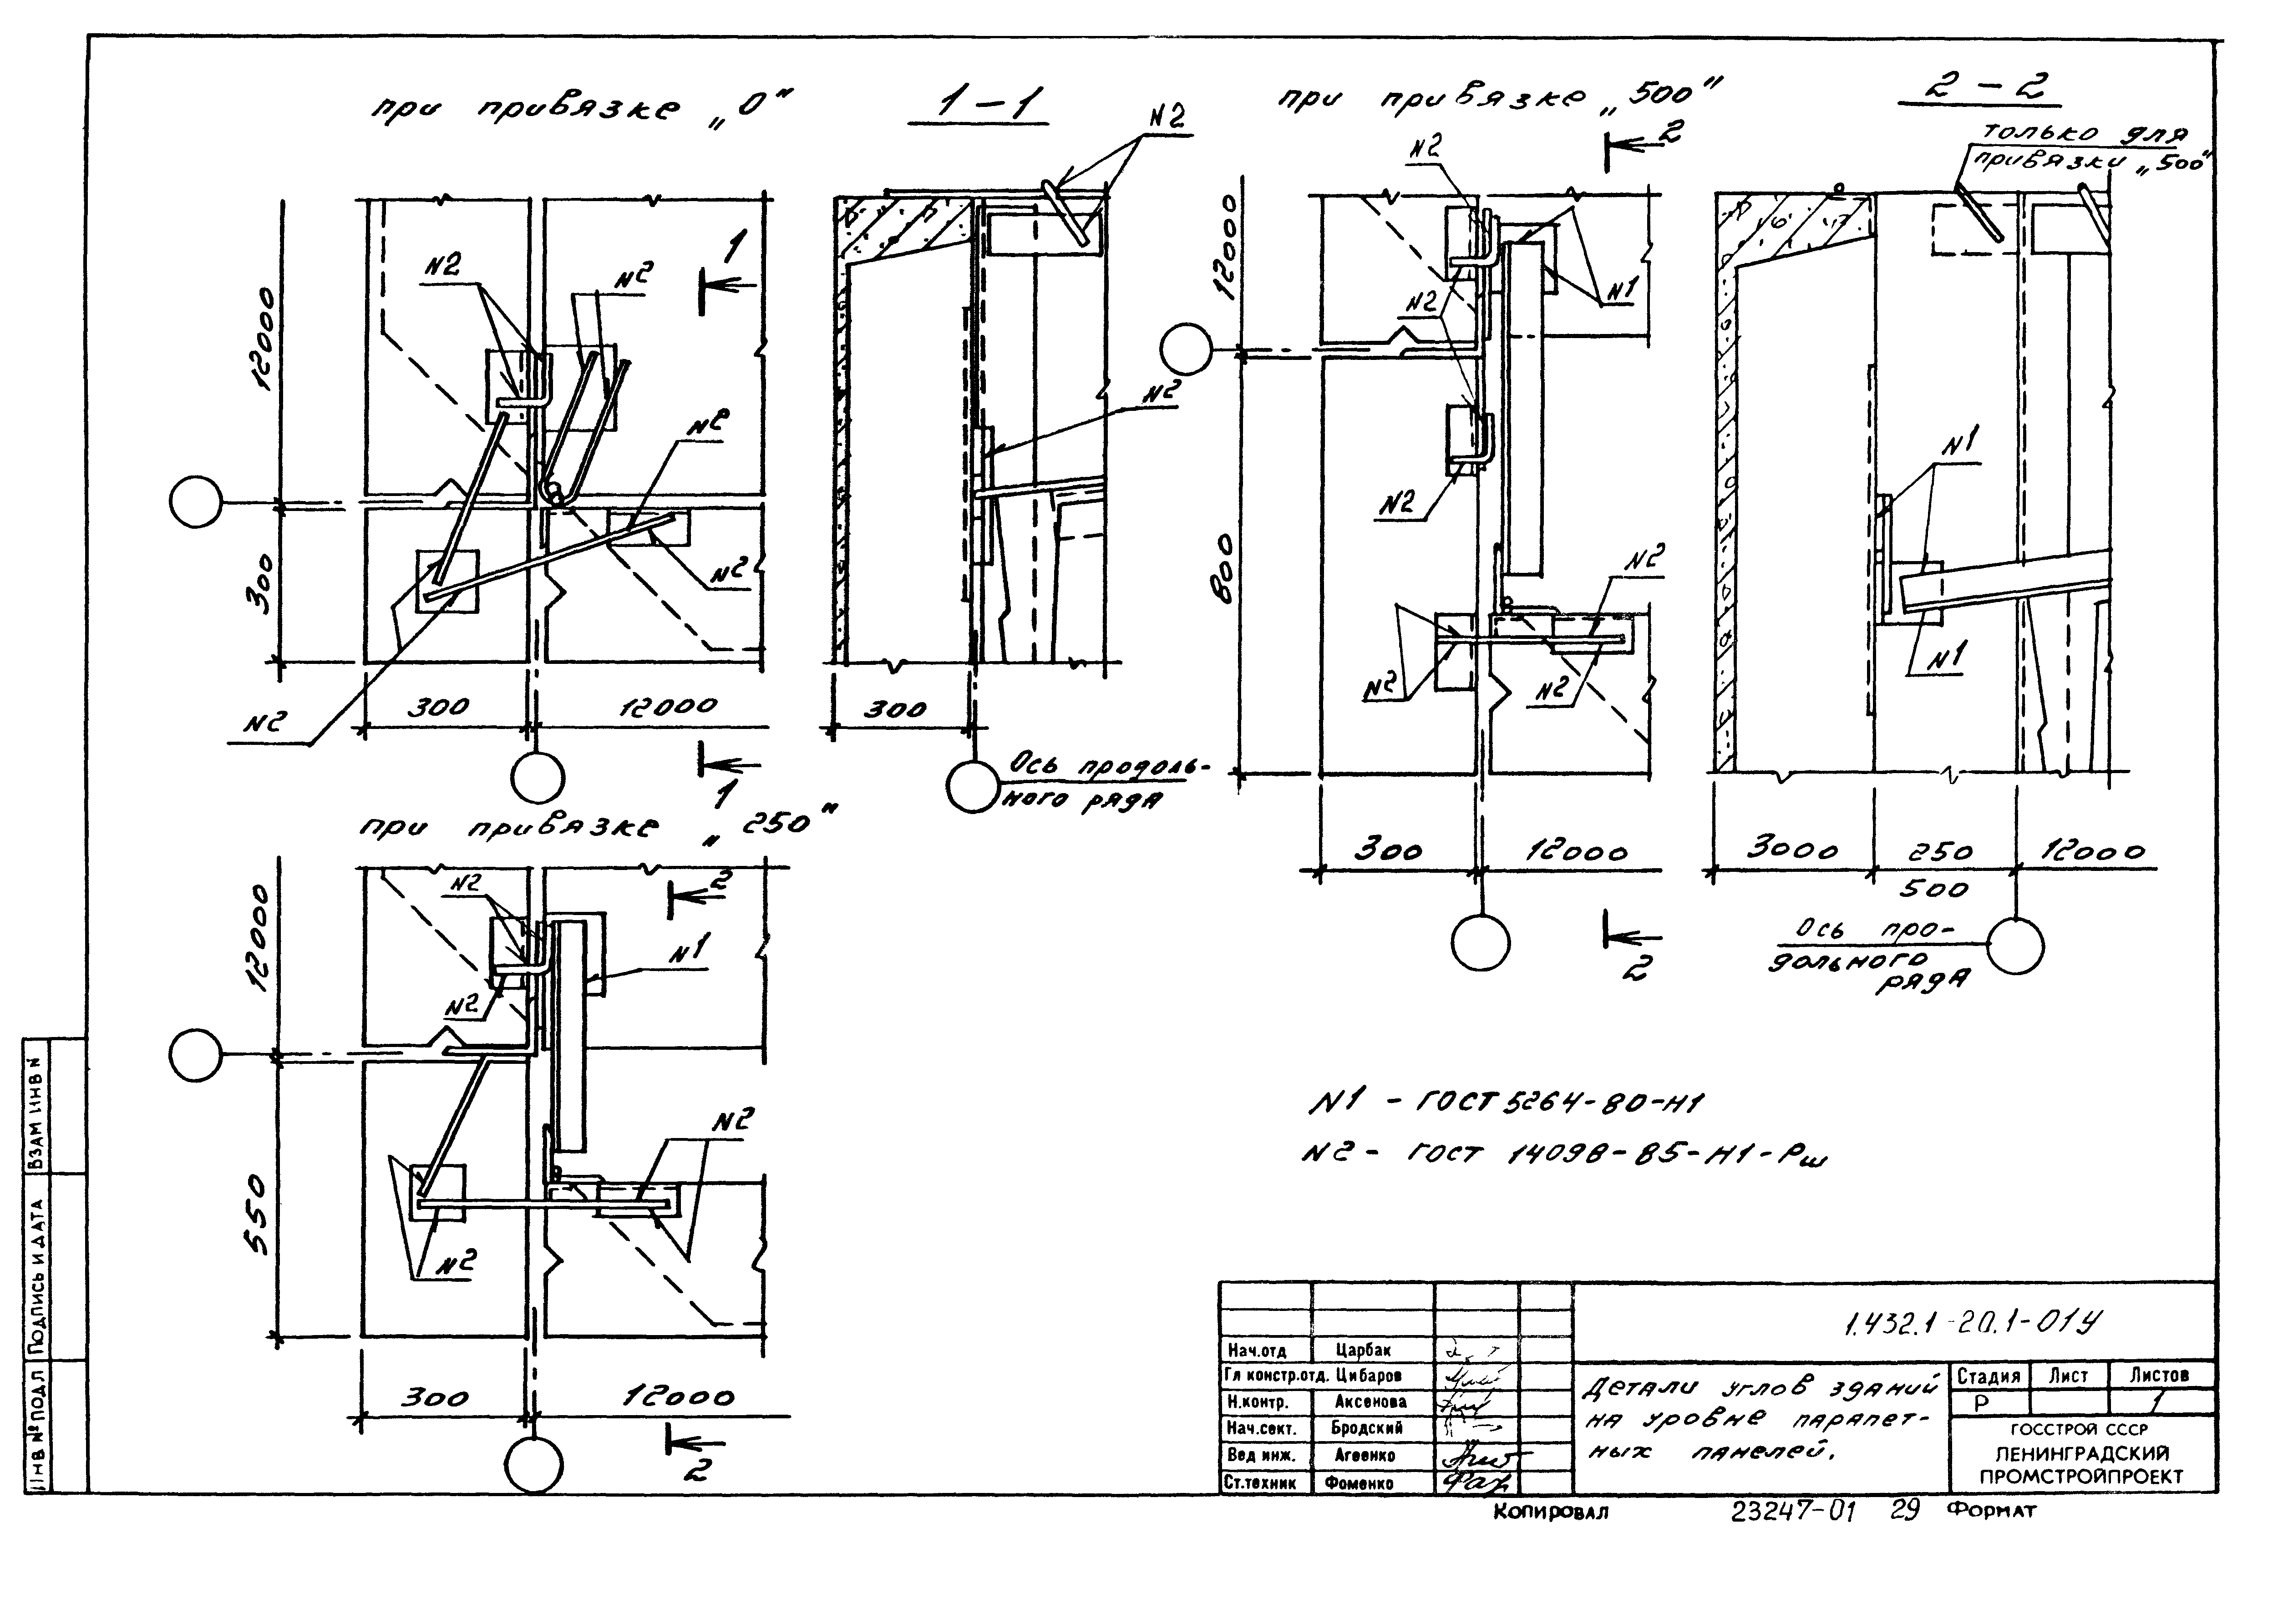 при привязке „0“
1-1
при привязке „500“
2-2
только для
привязки „500“
N2
N2
2
N2
12000
1
N2
N2
N2
N2
N2
N1
12000
N2
N2
N2
N1
300
800
N2
N2
N2
N1
300
12000
300
N2
1
Ось продоль-
ного ряда
300
12000
3000
250
12000
500
2
Ось про-
дольного
ряда
при привязке „250“
N2
2
12000
N1
N2
N2
550
N2
300
12000
2
N1 - ГОСТ 5264-80-Н1
N2 - ГОСТ 14098-85-Н1-Рш
1.432.1-20.1-01У
Нач.отд Царбак
Гл констр.отд. Цибаров
Н.контр. Аксенова
Нач.сект. Бродский
Вед инж. Агеенко
Ст.техник Фоменко
Детали углов зданий
на уровне парапет-
ных панелей.
Стадия Лист Листов
Р 1
ГОССТРОЙ СССР
ЛЕНИНГРАДСКИЙ
ПРОМСТРОЙПРОЕКТ
Копировал 23247-01 29 Формат
ВЗАМ ИНВ N
Подпись и дата
ИНВ № ПОДЛ